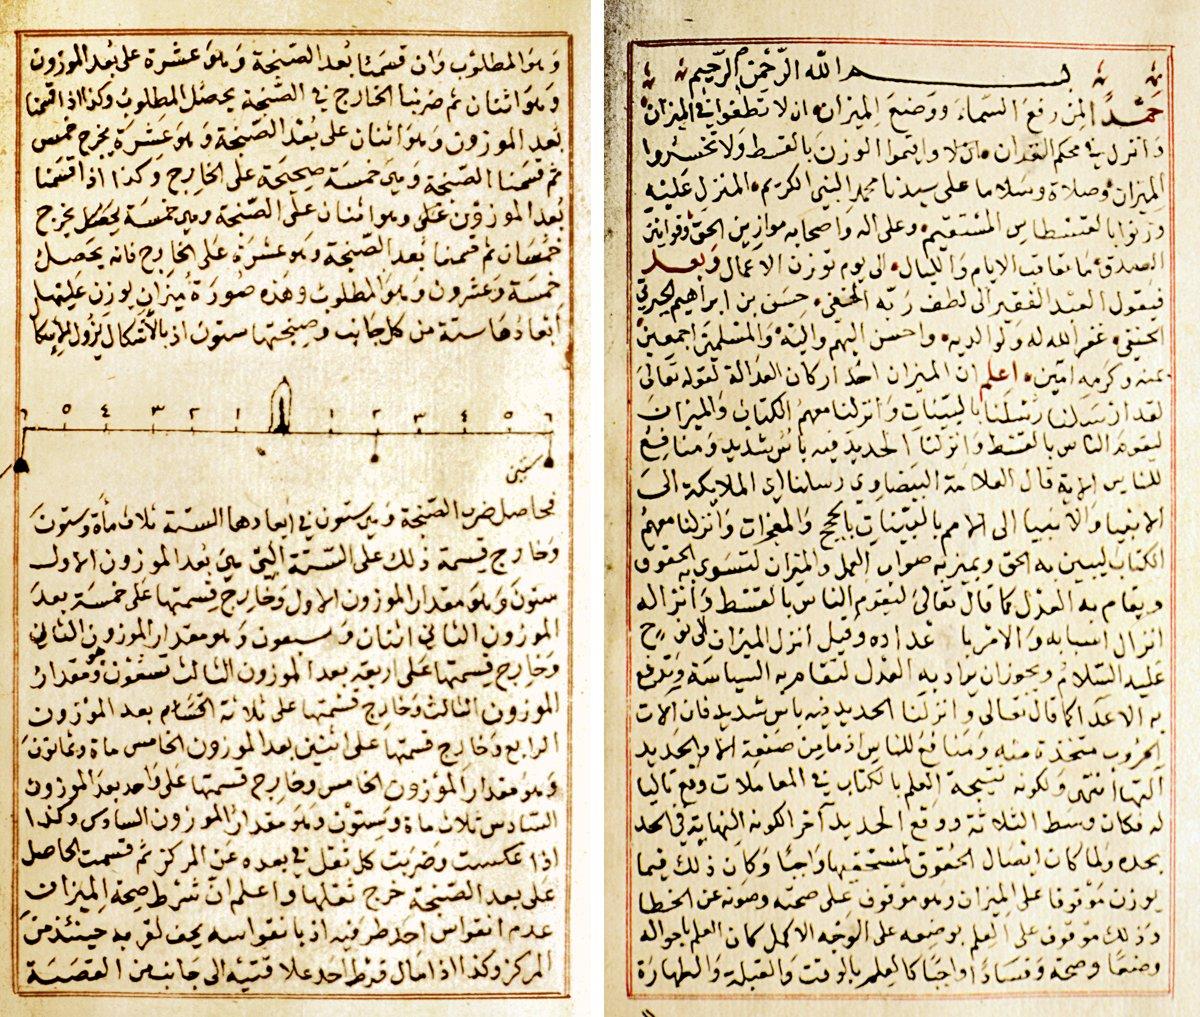 بسم الله الرحمن الرحيم
حمدا لمن رفع السماء ووضع الميزان ان لا تطغوا في الميزان
وانزل في محكم القران واقيموا الوزن بالقسط ولا تخسروا
الميزان وصلاة وسلاما على سيدنا محمد النبي الكريم المنزل عليه
وزنوا بالقسطاس المستقيم وعلى اله واصحابه موازين الحق وقوانين
الصدق ما تعاقب الايام والليال الى يوم توزن الاعمال وبعد
فيقول العبد الفقير الى لطف ربه الخفي حسن بن ابراهيم الجبرتي
الحنفي غفر الله له ولوالديه واحسن اليهم واليه والمسلمين اجمعين
بمنه وكرمه امين اعلم ان الميزان احد اركان العدالة لقوله تعالى
لقد ارسلنا رسلنا بالبينات وانزلنا معهم الكتاب والميزان
ليقوم الناس بالقسط وانزلنا الحديد فيه باس شديد ومنافع
للناس الاية قال العلامة البيضاوي رسلنا اي الملايكة الى
الانبيا والانبيا الى الامم بالبينات بالحجج والمعجزات وانزلنا معهم
الكتاب ليبين به الحق ويميز به صواب العمل والميزان لتسوى به الحقوق
ويقام به العدل كما قال تعالى ليقوم الناس بالقسط وانزاله
انزال اسبابه والامر باعداده وقيل انزل الميزان الى نوح
عليه السلام ويجوز ان يراد به العدل لتقام به السياسة وتدفع
به الاعدا كما قال تعالى وانزلنا الحديد فيه باس شديد فان الات
الحروب متخذة منه ومنافع للناس اذ ما من صنعة الا والحديد
التها انتهى ولكونه نتيجة العلم بالكتاب في المعاملات وقع تاليا
له فكان وسط الثلاثة ووقع الحديد آخرا لكونه النهاية في الحد
بحده ولما كان ايصال الحقوق لمستحقيها واجبا وكان ذلك فيما
يوزن موقوفا على الميزان وهو موقوف على صحته وصونه عن الخطا
وذلك موقوف على العلم بوضعه على الوجه الاكمل كان العلم باحواله
وضعا وصحة وفسادا واجبا كالعلم بالوقت والقبلة والطهارة
وهو المطلوب وان قسمنا بعد الصنجة وهو عشرة على بعد الموزون
وهو اثنان ثم ضربنا الخارج في الصنجة يحصل المطلوب وكذا اذا قسمنا
بعد الموزون وهو اثنان على بعد الصنجة وهو عشرة يخرج خمس
ثم قسمنا الصنجة وهي خمسة صحيحة على الخارج وكذا اذا قسمنا
بعد الموزون وهو اثنان على الصنجة وهي خمسة يخرج
خمسان ثم قسمنا بعد الصنجة وهو عشرة على الخارج فانه يحصل
خمسة وعشرون وهو المطلوب وهذه صورة ميزان يوزن عليها
ابعادها ستة من كل جانب وصنجتها ستون اذ بالاشكال يزول الاشكال
٦ ٥ ٤ ٣ ٢ ١ ١ ٢ ٣ ٤ ٥ ٦
ستين
فحاصل ضرب الصنجة وهي ستون في ابعادها الستة ثلاث مأة وستون
وخارج قسمة ذلك على الستة التي هي بعد الموزون الاول
ستون وهو مقدار الموزون الاول وخارج قسمتها على خمسة بعد
الموزون الثاني اثنان وسبعون وهو مقدار الموزون الثاني
وخارج قسمتها على اربعة بعد الموزون الثالث تسعون وهو مقدار
الموزون الثالث وخارج قسمتها على ثلاثة بعد الموزون
الرابع وخارج قسمتها على اثنين بعد الموزون الخامس ماة وثمانون
وهو مقدار الموزون الخامس وخارج قسمتها على واحد بعد الموزون
السادس ثلاث ماة وستون وهو مقدار الموزون السادس وكذا
اذا عكست وضربت كل ثقل في بعده عن المركز ثم قسمت الحاصل
على بعد الصنجة خرج ثقلها واعلم ان شرط صحة الميزان
عدم انقواس احد طرفيه اذ بانقواسه يخف لقربه حينئذ من
المركز وكذا اذا مال قرط احد علاقتيه الى جانب من القصبة